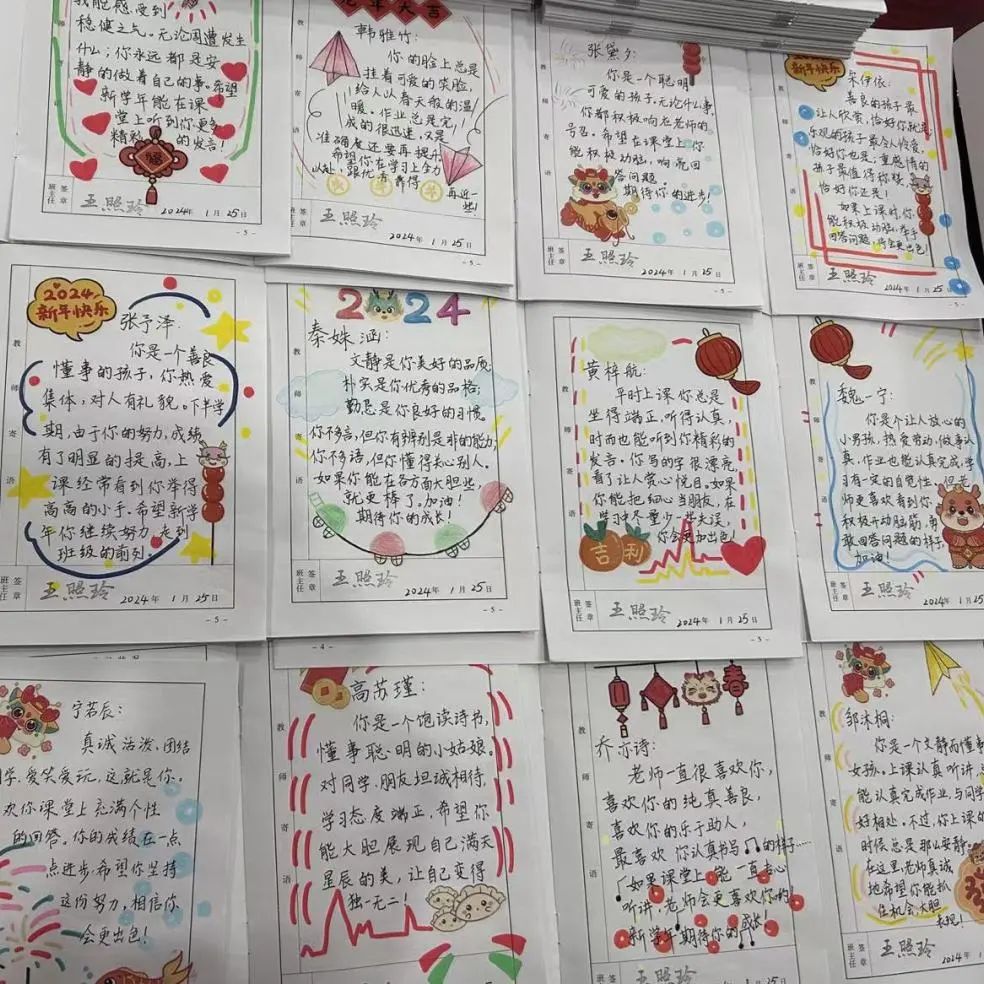 我能感受到
稳健之气。无论周遭发生
什么;你永远都是安
静的做着自己的事。希望
新学年能在课
堂上听到你更多
精彩的发言!
班主任
签章
王照玲
2024年1月25日
-5-
龙年大吉
韩雅竹:
你的脸上总是
挂着可爱的笑脸,
给人以春天般的温
暖。作业总是完
成的很迅速,又是
准确度还要再提升
希望你在学习上全力
以赴,跟优秀靠得
再近一些!
教师寄语
班主任
签章
王照玲
2024年1月25日
-5-
张黛夕:
你是一个聪明
可爱的孩子。无论什么事,
你都积极响应老师的
号召。希望在课堂上你
能积极动脑,响亮回
答问题
期待你的进步!
教师寄语
班主任
签章
王照玲
2024年1月25日
-5-
新年快乐
宋伊依:
善良的孩子最
让人欣赏,恰好你就是;
乐观的孩子最令人怜爱,
恰好你也是;重感情的
孩子最值得称赞,
恰好你还是!
如果上课时你
能积极动脑,举手
回答问题,将会更出色!
教师寄语
班主任
签章
王照玲
2024年1月25日
-5-
2024
新年快乐
张予泽:
你是一个善良
懂事的孩子,你热爱
集体,对人有礼貌。下半学
期,由于你的努力,成绩
有了明显的提高,上
课经常看到你举得
高高的小手。希望新学
年你继续努力,走到
班级的前列。
教师寄语
班主任
签章
王照玲
2024年1月25日
-5-
2024
秦姝涵:
文静是你美好的品质
朴实是你优秀的品格;
勤忌是你良好的习惯
你不多言,但你有辨别是非的能力,
你不多语,但你懂得关心别人。
如果你能在各方面大胆些,
就更棒了。加油!
期待你的成长!
教师寄语
班主任
签章
王照玲
2024年1月25日
-5-
黄梓航:
平时上课你总是
坐得端正,听得认真,
时而也能听到你精彩的
发言。你写的字很漂亮,
看了让人赏心悦目。如果
你能把细心当朋友,在
学习中尽量少一些失误,
你会更加出色!
吉利
教师寄语
班主任
签章
王照玲
2024年1月25日
-5-
魏一宁:
你是个让人放心的
小男孩,热爱劳动,做事认
真。作业也能认真完成,学
习有一定的自觉性,但老
师更喜欢看到你,
积极开动脑筋,勇
敢回答问题的样子,
加油!
教师寄语
班主任
签章
王照玲
2024年1月25日
-5-
宁若辰:
真诚活泼,团结
同学、爱笑爱玩,这就是你。
喜欢你课堂上充满个性
的回答。你的成绩在一点
点进步,希望你坚持
这份努力,相信你
会更出色!
-4-
高苏瑾:
你是一个饱读诗书,
懂事聪明的小姑娘。
对同学、朋友坦诚相待,
学习态度端正,希望你
能大胆展现自己满天
星辰的美,让自己变得
独一无二!
教师寄语
春
乔亦诗:
老师一直很喜欢你,
喜欢你的纯真善良,
喜欢你的乐于助人,
最喜欢你认真书写的样子……
如果课堂上能一直专心
听讲,老师会更喜欢你的!
新学年期待你的成长!
教师寄语
班主任
签章
王照玲
2024年1月25日
邹沐桐:
你是一个文静而懂事
女孩。上课认真听讲,
能认真完成作业,与同学
好相处。不过,你上课的
时候总是那么安静。
在这里老师真诚
地希望你能抓
住机会,大胆
表现!
教师寄语
班主任
签章
王照玲
2024年1月25日